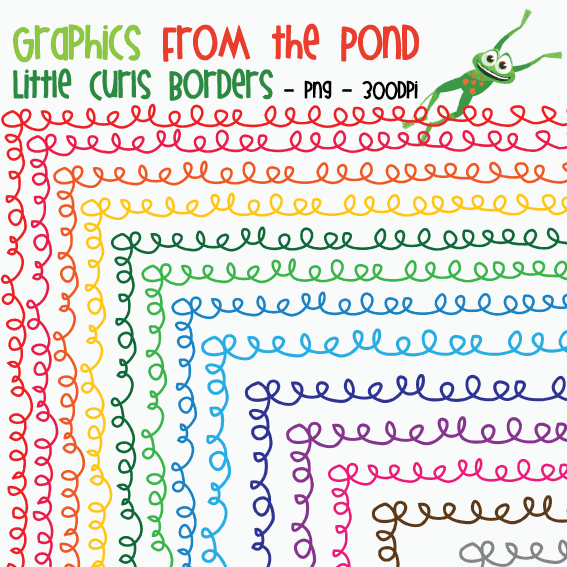 GRaPHiCS FROM the POND
Little Curls Borders - PNG - 300DPi